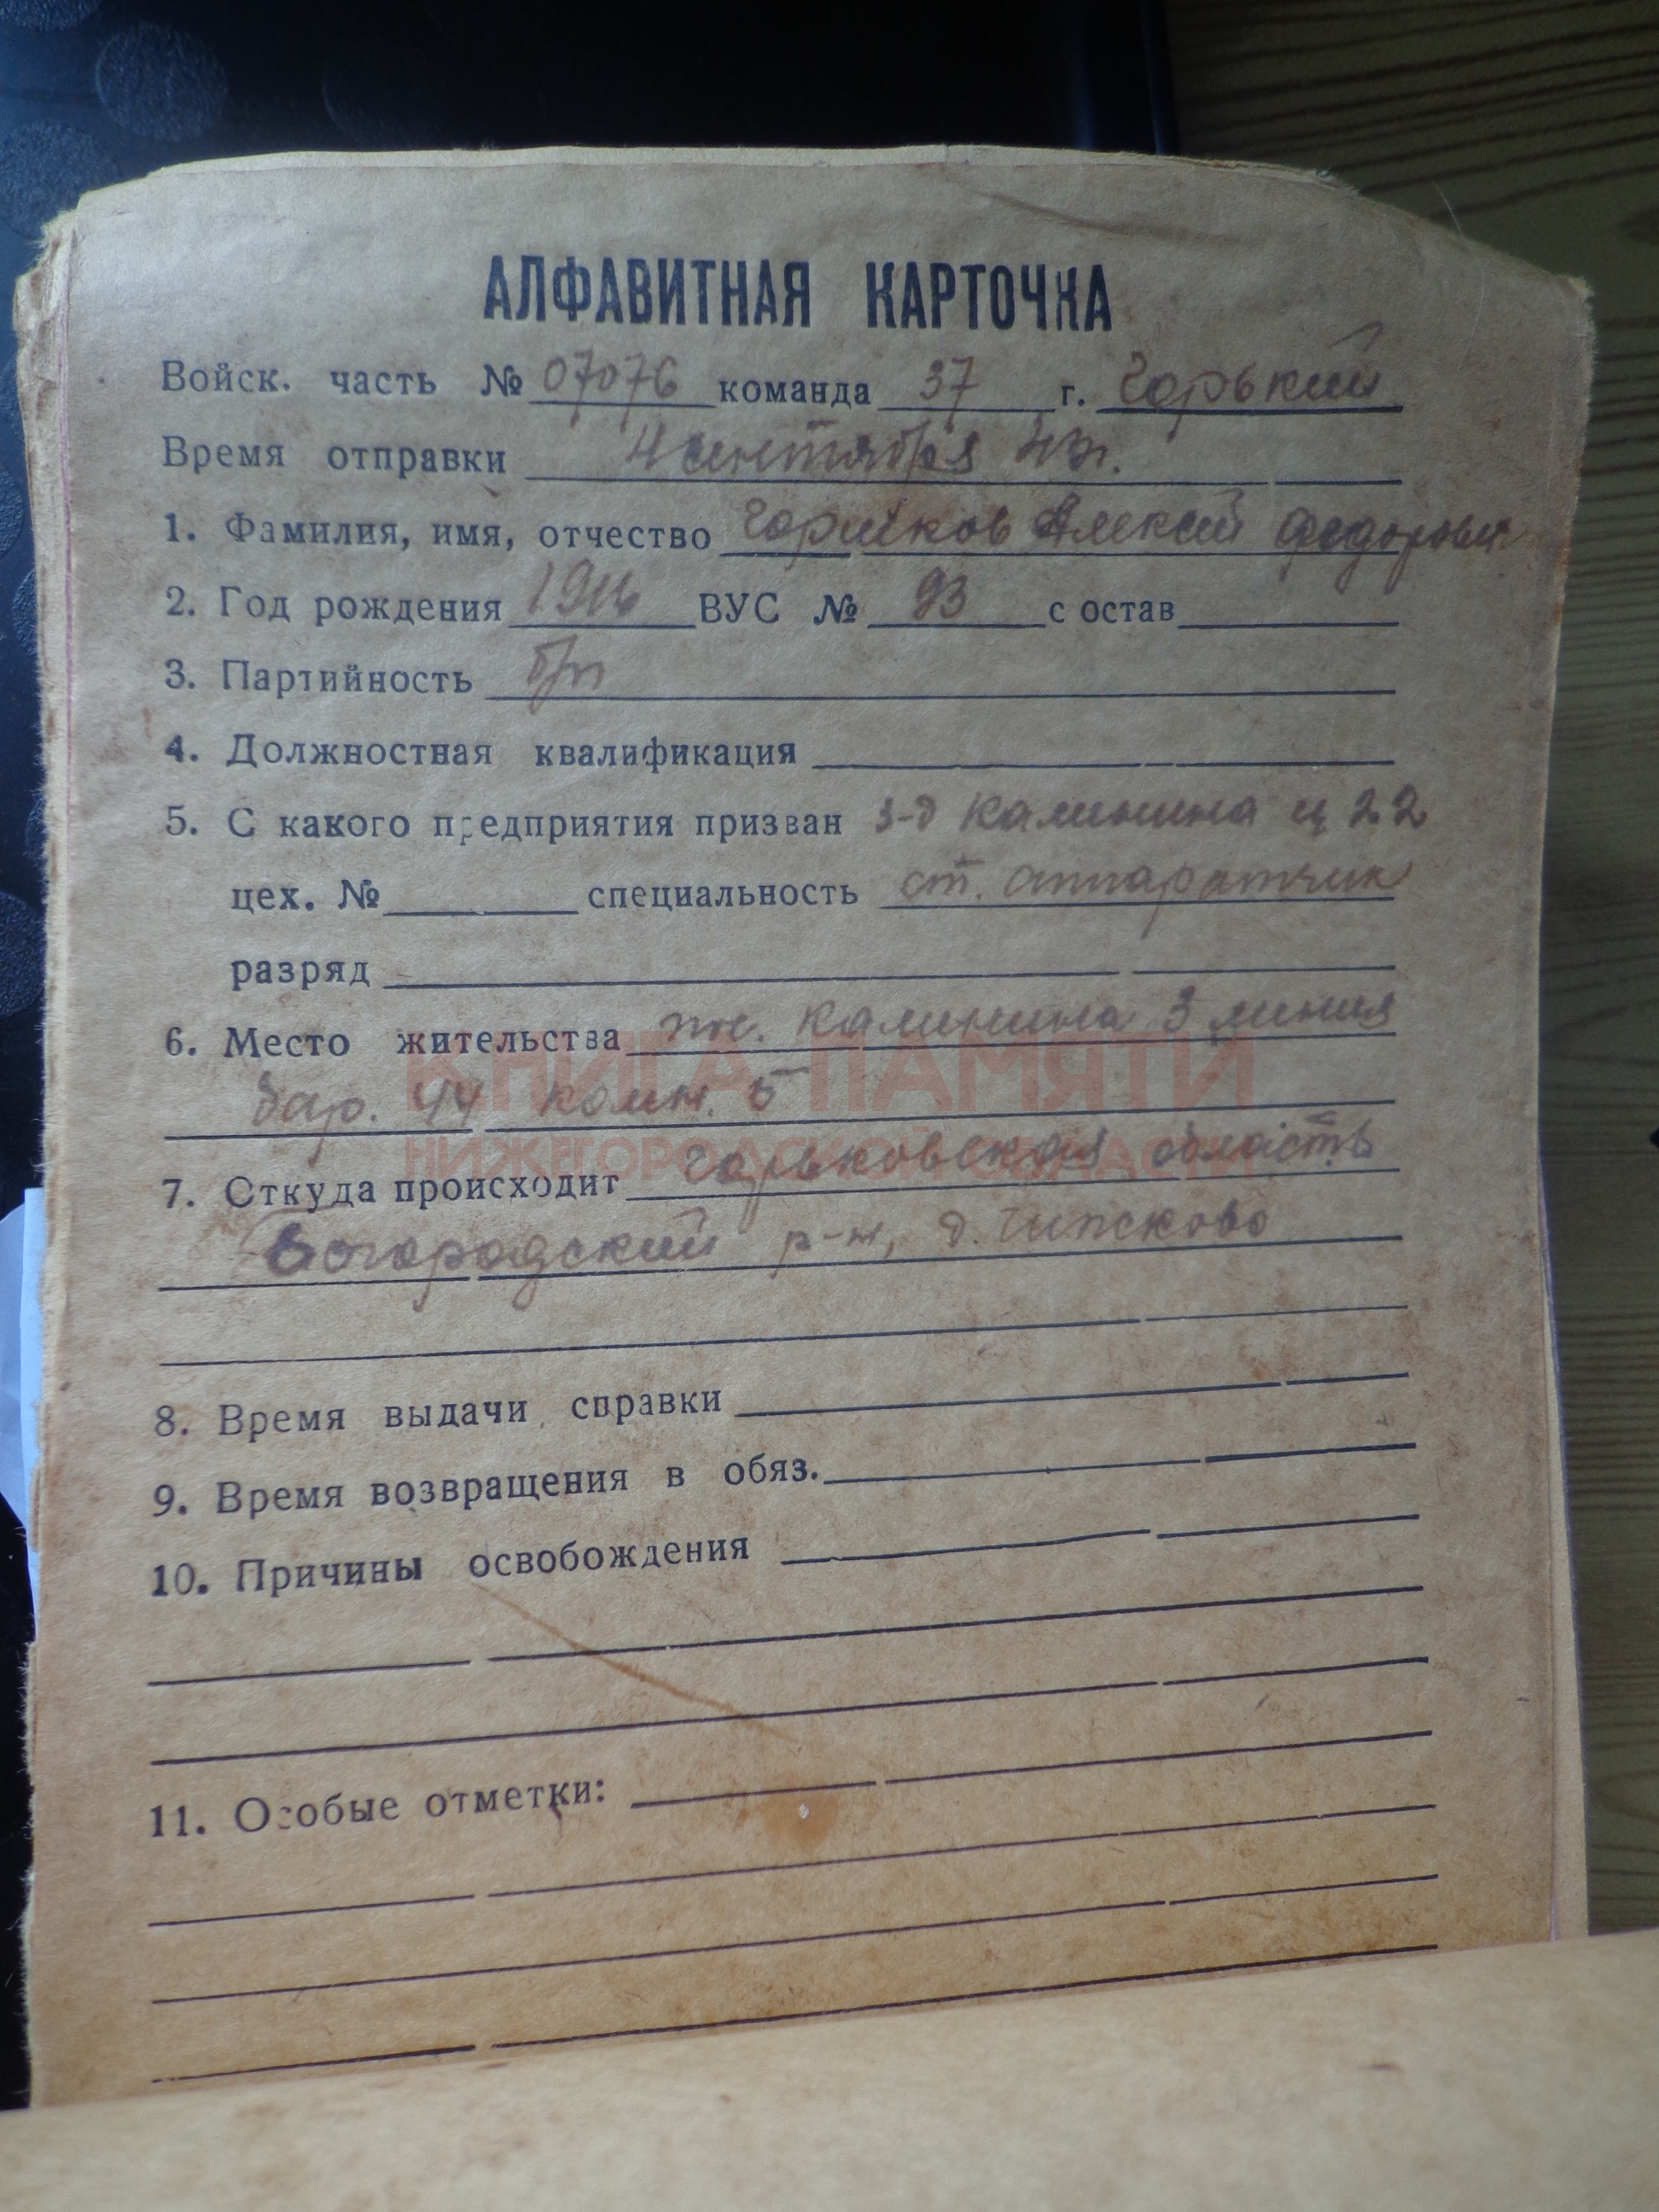 АЛФАВИТНАЯ КАРТОЧКА
Войск. часть № 07076 команда 37 г. Горький
Время отправки 4 сентября 43г.
1. Фамилия, имя, отчество Алексей Федорович
2. Год рождения 1916 ВУС № 93 с остав
3. Партийность б/п
4. Должностная квалификация
5. С какого предприятия призван з-д Калинина ц 22
цех. № специальность ст. аппаратчик
разряд
6. Место жительства пос. Калинина 3 линия
КНИГА ПАМЯТИ
бар. 44 комн. 5
НИЖЕГОРОДСКОЙ ОБЛАСТИ
7. Откуда происходит Горьковская область
Богородский р-н, д.
8. Время выдачи справки
9. Время возвращения в обяз.
10. Причины освобождения
11. Особые отметки: